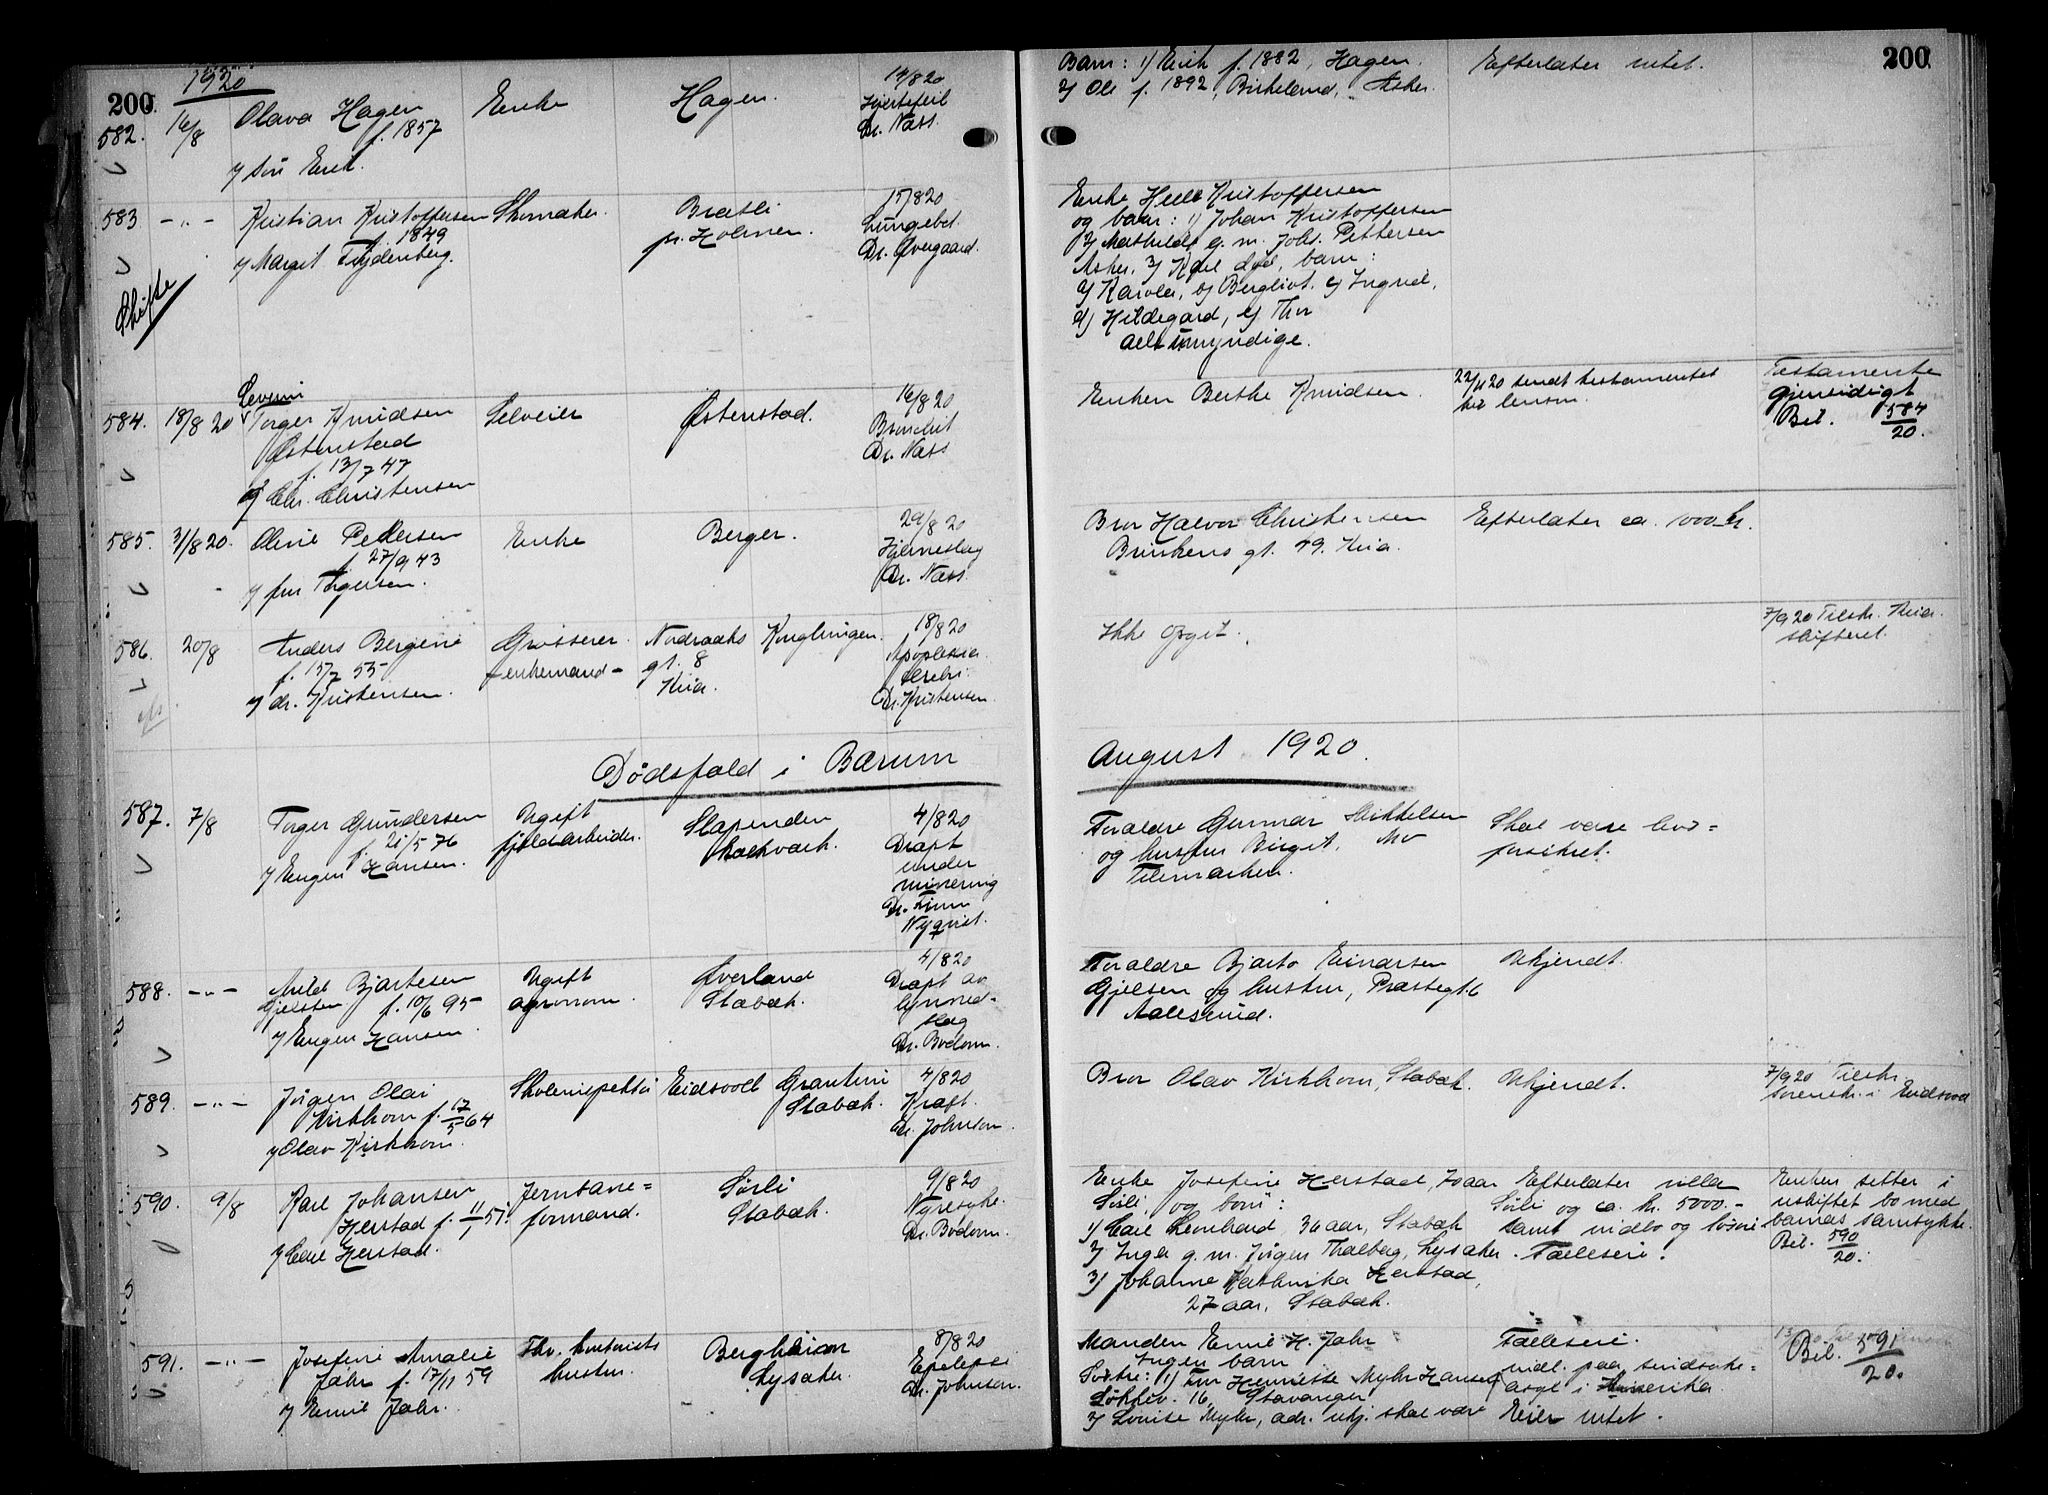 200
1920
582.
16/8
Olava Hagen
f. 1857
v/ søn Erik.
Enke
Hagen.
14/8 20
Hjertefeil
Dr. Næss.
Barn: 1/ Erik f. 1882, Hagen.
2/ Ole f. 1892, Birkelund, Asker.
Efterlater intet.
200
583
-"-
Skifte
Kristian Kristoffersen
f. 1849
v/ Margit Frydenberg.
Skomaker.
Bratli
pr. Holmen.
15/8 20
Lungebet.
Dr. Øvergaard.
Enke Helle Kristoffersen
og barn: 1/ Johan Kristoffersen
2/ Mathilde g. m. Johs. Pettersen
Asker, 3/ Karl død, barn:
a/ Karola, b/ Bergliot. c/ Ingrid,
d/ Hildegard, e/ Thor
alle umyndige.
584.
18/8 20
Severin
Torger Knudsen
Østenstad
f. 13/7 47
v/ Chr. Christensen
Selveier
Østenstad.
16/8 20
Bronchit
Dr. Næss
Enken Berthe Knudsen.
22/11 20 sendt testamentet
til lensm.
Testamente
gjensidigt
Bil. 584/20.
585.
31/8 20.
Oline Pedersen
f. 27/9 43
v/ fru Torgersen.
Enke
Berger.
29/8 20
Hjerneslag
Dr. Næss.
Bror Halvor Christensen
Brinkens gt. 49. Kria.
Efterlater ca. 1000 kr.
586.
20/8
Anders Bergene
f. 15/7 55
v/ dr. Kristensen.
Grosserer
- enkemand -
Nordraaks
gt. 8
Kria.
Konglungen.
18/8 20
Apoplexia
cerebri.
Dr. Kristensen.
Ikke opgit.
7/9 20 Tilskr. Kria.
skifteret.
Dødsfald i Bærum
August 1920.
587.
7/8
Torger Gundersen
f. 21/5 76
v/ Eugen Hansen.
Ugift
fjeldarbeider.
Slependen
kalkværk.
4/8 20
Dræpt
under
minering
Dr. Finn
Nyqvist.
Forældre Gunnar Mikkelsen
og hustru Birgit, Mo
Telemarken.
Skal være livs=
forsikret.
588.
-"-
Arild Bjartesen
Gjelsten f. 10/6 95
v/ Eugen Hansen.
Ugift
agronom.
Øverland
Stabæk.
4/8 20
Dræpt av
lynned-
slag
Dr. Bodom.
Forældre Bjarto Einarsen
Gjelsen og hustru, Præstegt. 6
Aalesund.
Ukjendt.
589.
-"-
Jørgen Olai
Kirkhorn f. 17/5 64
v/ Olav Kirkhorn.
Skoleinspektør
Eidsvold
Grantun
Stabæk.
4/8 20
Kræft.
Dr. Johnson.
Bror Olav Kirkhorn, Stabæk.
Ukjendt.
7/9 20 Tilskr.
sorenskr. i Eidsvold
590.
9/8
Karl Johansen
Herstad f. 11/1 51.
v/ Carl Herstad.
Jernbane=
formand.
Sørli
Stabæk.
9/8 20
Nyresyke.
Dr. Bodom.
Enke Josefine Herstad, 70 aar
Sørli, og børn:
1/ Carl Leonhard, 30 aar, Stabæk
2/ Inga g. m. Jørgen Thalberg, Lysaker.
3/ Johanne Kathinka Herstad,
27 aar, Stabæk.
Efterlater villa
Sørli og ca. kr. 5000.-
samt indbo og løsøre
Fælleseie.
Enken sitter i
uskiftet bo med
barnas samtykke.
Bil. 590/20.
591.
-"-
Josefine Amalie
Jahr f. 17/11 59
v/ Emil Jahr.
Fhv.
hustru.
Bergheim
Lysaker.
8/8 20
Epelepsi
Dr. Johnson.
Manden Emil H. Jahr
Ingen barn
Søstre: 1/ Fru Henriette Myhr Hansen
Løkkev. 16, Stavanger
2/ Lovise Myhr, adr. ukj. skal være
Fælleseie.
indl. paa sindsyke=
asyl i Amerika
Eier intet.
Bil. 591/20.